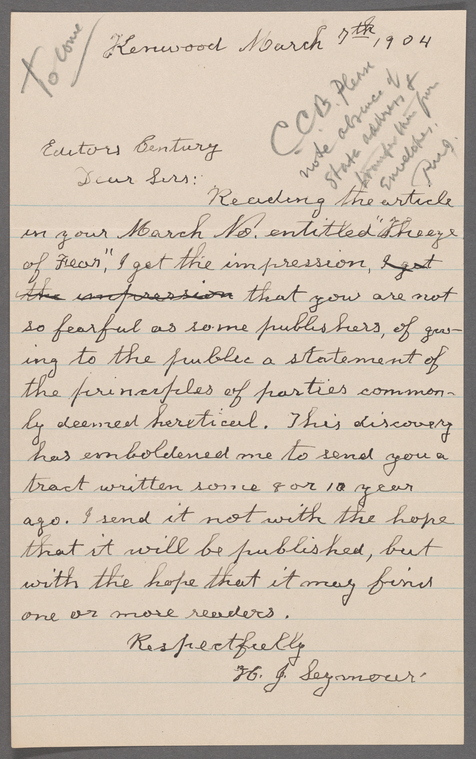 To come
Kenwood March 7th, 1904
C.C.B. Please
note absence of
State address &
stamps
Envelopes.
Editors Century
Dear Sirs:
Reading the article
in your March No. entitled "The eye
of Fear", I get the impression, I get
the impression that you are not
so fearful as some publishers, of giv-
ing to the public a statement of
the principles of parties common-
ly deemed heretical. This discovery
has emboldened me to send you a
tract written some 8 or 10 year
ago. I send it not with the hope
that it will be published, but
with the hope that it may find
one or more readers.
Respectfully
H. J. Seymour